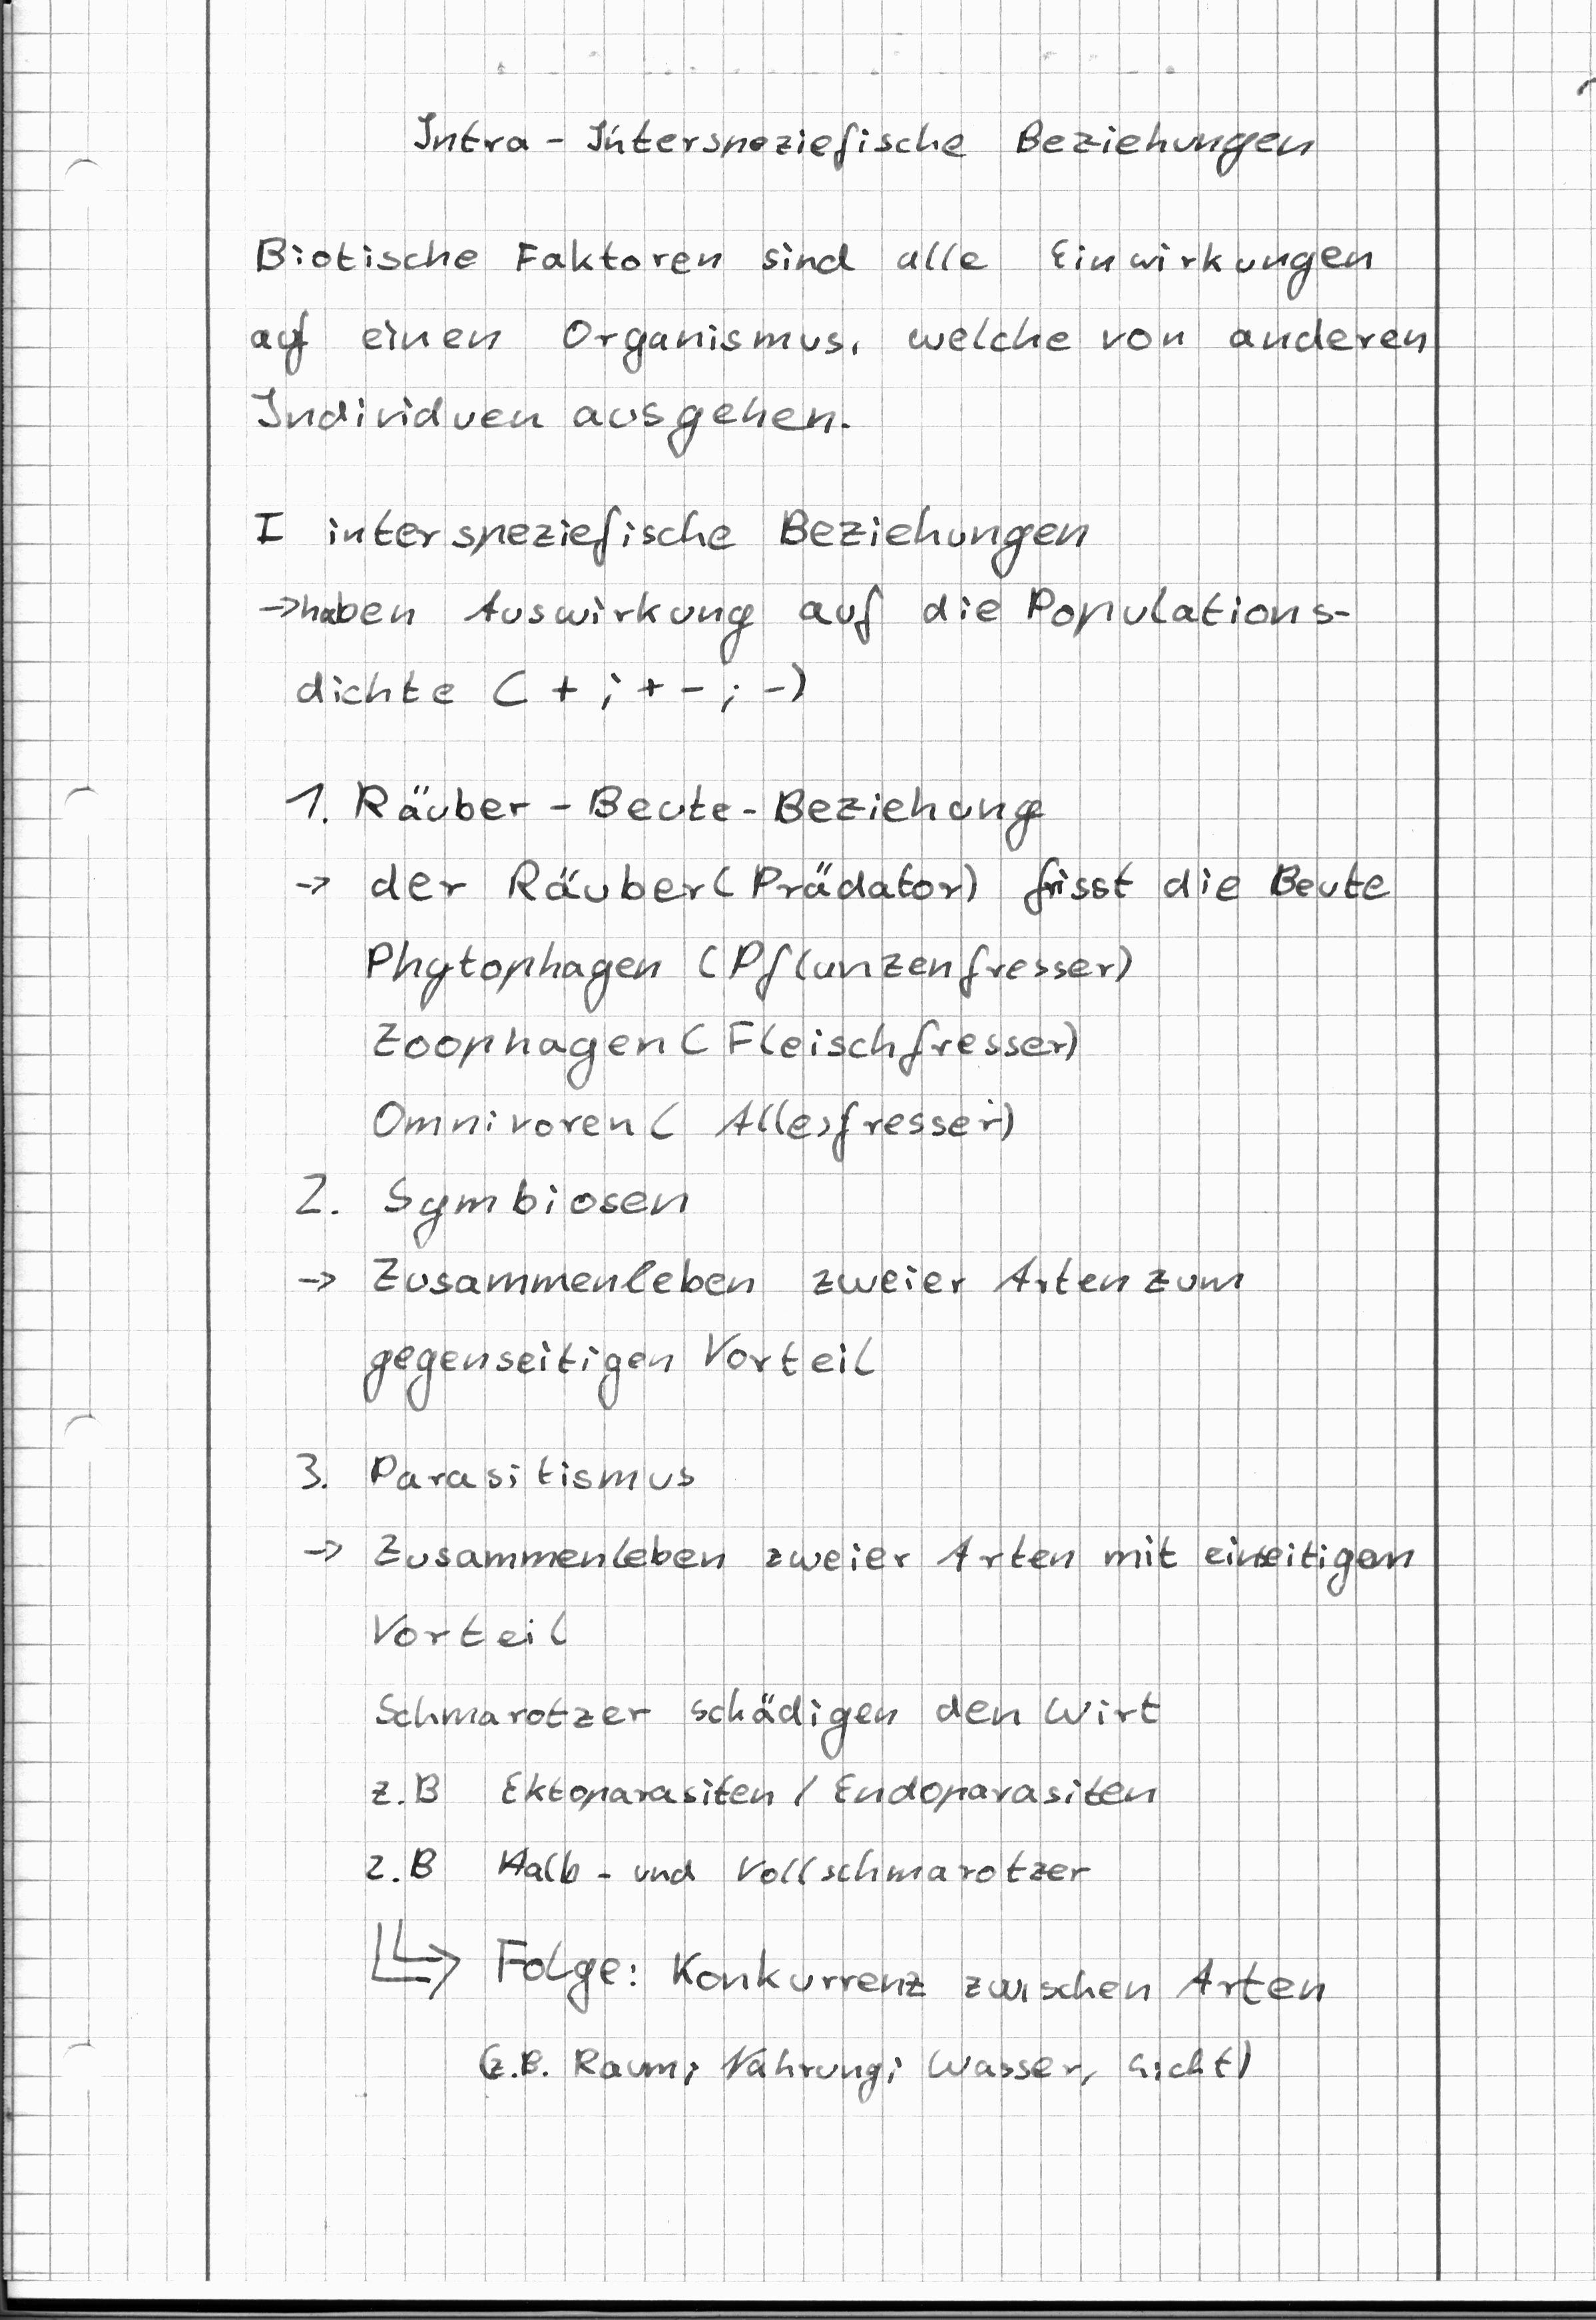 Intra - Interspeziefische Beziehungen
Biotische Faktoren sind alle Einwirkungen
auf einen Organismus, welche von anderen
Individuen ausgehen.
I interspeziefische Beziehungen
→ haben Auswirkung auf die Populations-
dichte ( + ; + - ; - )
1. Räuber - Beute - Beziehung
→ der Räuber ( Prädator) frisst die Beute
Phytophagen ( Pflanzenfresser)
Zoophagen ( Fleischfresser)
Omnivoren ( Allesfresser)
2. Symbiosen
→ Zusammenleben zweier Arten zum
gegenseitigen Vorteil
3. Parasitismus
→ Zusammenleben zweier Arten mit einseitigen
Vorteil
Schmarotzer schädigen den Wirt
z.B Ektoparasiten / Endoparasiten
z.B Halb - und Vollschmarotzer
Folge: Konkurrenz zwischen Arten
(z.B. Raum; Nahrung; Wasser, Licht)